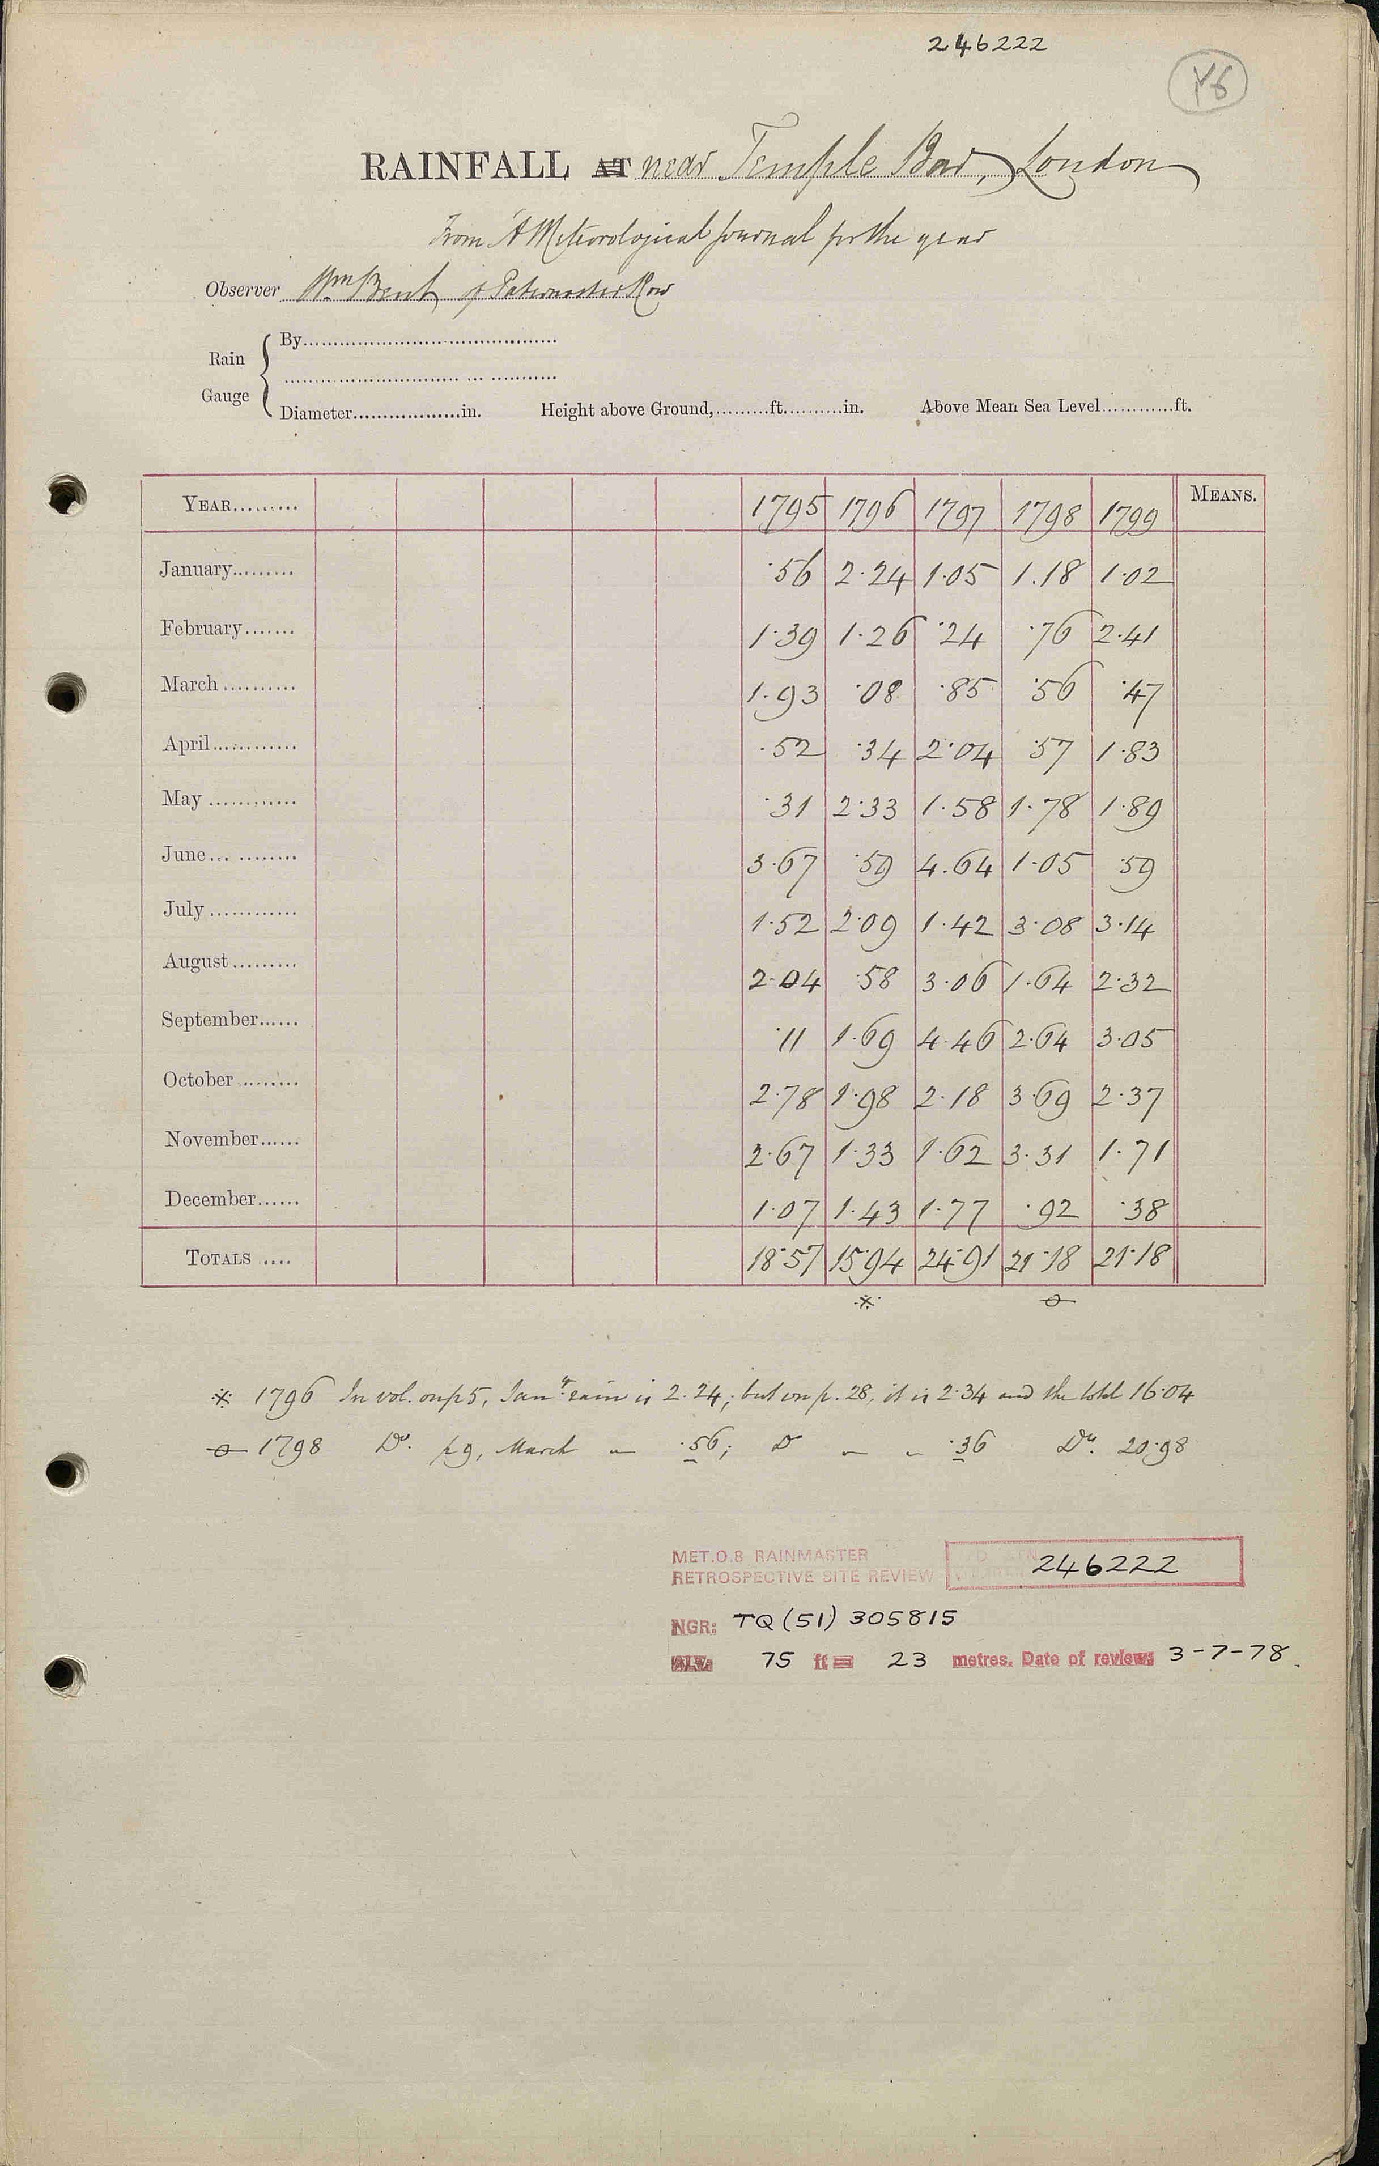 246222
Y6
RAINFALL AT near Temple Bar, London
From "A Meteorological Journal for the year
Observer Wm Bent of Paternoster Row
Rain Gauge { By
Diameter in. Height above Ground, ft. in. Above Mean Sea Level ft.
YEAR 1795 1796 1797 1798 1799 MEANS.
January ·56 2·24 1·05 1.18 1·02
February 1·39 1·26 ·24 ·76 2·41
March 1·93 ·08 ·85 ·56 ·47
April ·52 ·34 2·04 ·57 1·83
May ·31 2·33 1·58 1·78 1·89
June 3·67 ·59 4.64 1·05 ·59
July 1·52 2·09 1·42 3·08 3·14
August 2·04 ·58 3·06 1·64 2·32
September ·11 1·69 4·46 2·64 3·05
October 2·78 1·98 2·18 3·69 2·37
November 2·67 1·33 1·62 3·31 1·71
December 1·07 1·43 1·77 ·92 ·38
TOTALS 18·57 15·94 24·91 21·18 21·18
※ 1796 In vol. on p 5, Jany rain is 2·24; but on p. 28, it is 2·34 and the total 16·04
1798 Do. p 9, March " ·56; Do " " ·36 Do. 20·98
MET.O.8 RAINMASTER
RETROSPECTIVE SITE REVIEW 246222
NGR: TQ (51) 305815
ALT: 75 ft = 23 metres. Date of review: 3-7-78.